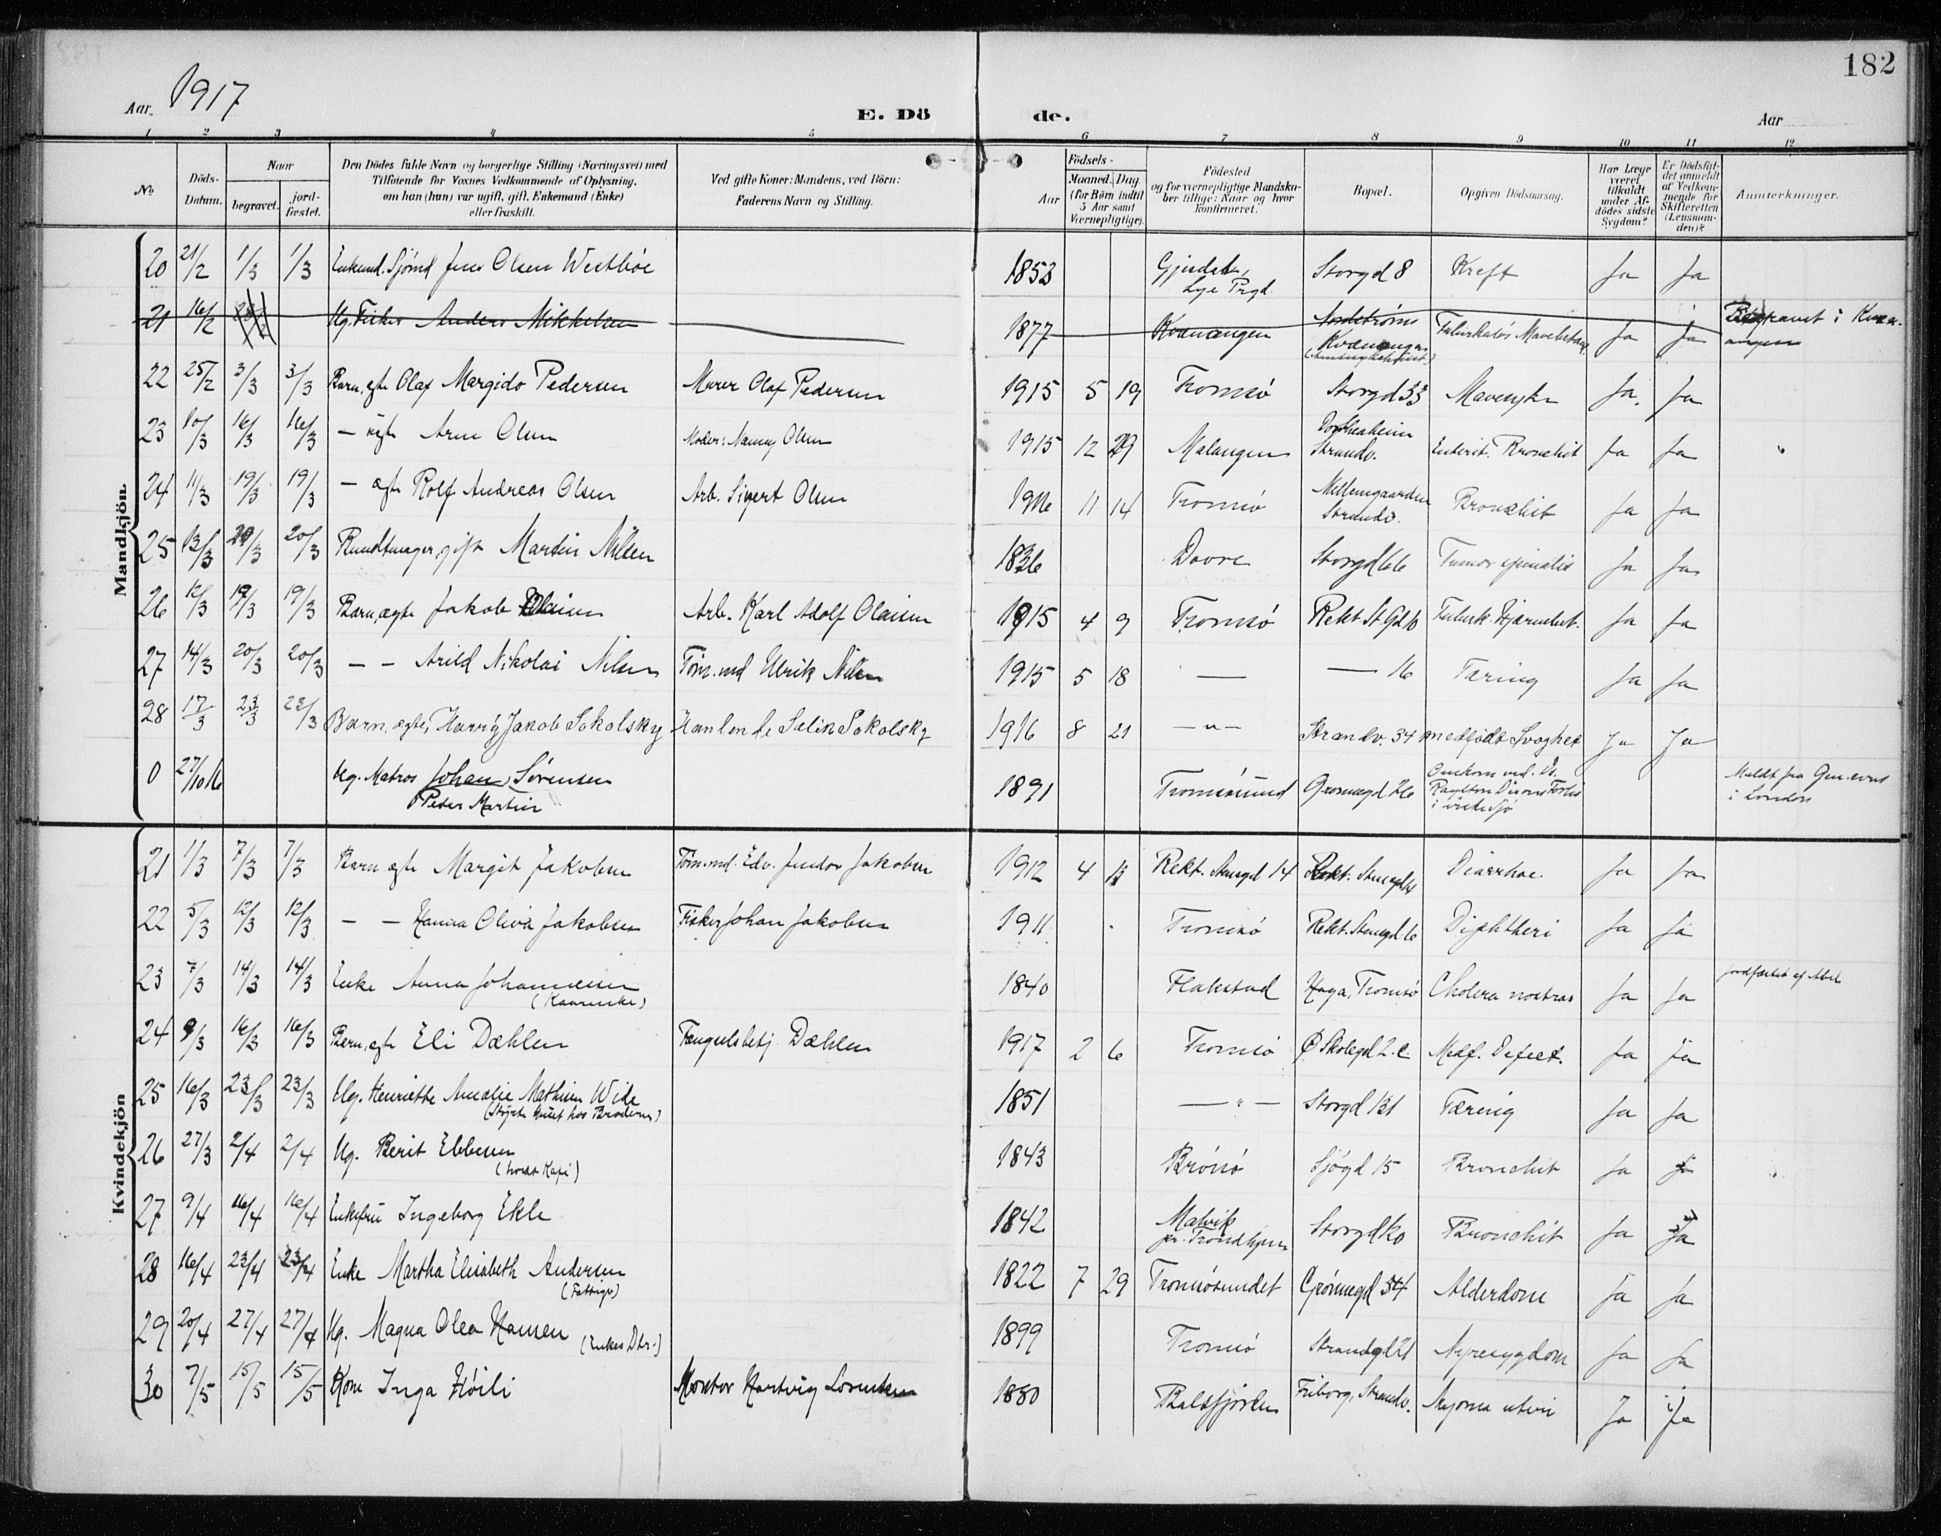 182
Aar 1917
E. Döde.
Aar
1 2 3 4 5 6 7 8 9 10 11 12
No
Döds-Datum.
Naar begravet. jordfæstet.
Den Dödes fulde Navn og borgerlige Stilling (Næringsvei) med Tilföiende for Voxnes Vedkommende af Oplysning, om han (hun) var ugift, gift, Enkemand (Enke) eller fraskilt.
Ved gifte Koner: Mandens, ved Börn: Faderens Navn og Stilling.
Födsels- Aar Maaned. Dag. (for Börn indtil 5 Aar samt Værnepligtige).
Födested og for værnepligtige Mandskaber tillige: Naar og hvor konfirmeret.
Bopæl.
Opgiven Dödsaarsag.
Har Læge været tilkaldt under Afdödes sidste Sygdom?
Er Dödsfaldet anmeldt af Vedkommende for Skifteretten (Lensmanden)?
Anmærkninger.
Mandkjön.
20 21/2 1/3 1/3 Enkemd. Sjömd Jens Olsen Westböe 1853 Lye Prgd Storgd 8 Kreft Ja Ja
21 16/2 Ug. Fisker Anders Mikkelsen 1877 Kvænangen Kvænangen Tuberkuløs Ja Ja i Kvænangen
22 25/2 3/3 3/3 Barn, egte Olaf Margido Pedersen Murer Olaf Pedersen 1915 5 19 Tromsö Storgd 33 Mavesyke Ja. Ja
23 10/3 16/3 16/3 — uegte Arne Olsen Moder: Nanny Olsen 1915 12 29 Malangen Strandv. Enterit. Bronchit Ja Ja
24 11/3 19/3 19/3 — egte Rolf Andreas Olsen Arb. Sigert Olsen 1916 11 14 Tromsö Mellemgaarden Strandv. Bronchit Ja Ja
25 13/3 20/3 20/3 gift Martin Nilsen 1836 Dovre Storgd 66 Tumor spinalis Ja Ja
26 12/3 19/3 19/3 Barn, egte Jakob Olaisen Arb. Karl Adolf Olaisen 1915 4 9 Tromsö Rekt. St. Gd 16 Tuberk. Hjernebet. Ja Ja
27 14/3 20/3 20/3 — — Arild Nikolai Nilsen Töm.md Ulrik Nilsen 1915 5 18 — — 16 Tæring Ja Ja
28 17/3 23/3 23/3 Barn, egte, Harry Jakob Sokolsky Selik Sokolsky 1916 8 21 — " — Strandv. 34 medfödt Svaghet Ja Ja
0 27/10 16 Ug. Matros Johan Sörensen
Peder Martin 1891 Tromsösund Grönnegd 26 Omkom ved Ds. i Nordsjö Meldt fra Gen.
i London
Kvindekjön
21 1/3 7/3 7/3 Barn egte Margit Jakobsen Töm.md. Edv. Jakobsen 1912 4 Rekt. Stensgd 14 Rekt. Stensgd 14 Diarrhoe Ja Ja
22 5/3 12/3 12/3 — — Hanna Oliva Jakobsen Fisker Johan Jakobsen 1911 Tromsö Rekt. Stensgd 16 Diphtheri Ja Ja
23 7/3 14/3 14/3 Enke Anna Johannesen 1840 Flakstad Haga, Tromsö Cholera nostras Ja Ja jordfæstet af Abel
24 9/3 16/3 16/3 Barn, egte Eli Dæhlen Fængselsbetj. Dæhlen 1917 2 6 Tromsö Ø Skolegd 2 c. Medf. Defect. Ja Ja
25 16/3 23/3 23/3 Ug. Henriette Amalie Mathisen Wide
(Styrt Huset hos Broderen) 1851 — " — Storgd 131 Tæring Ja Ja
26 27/3 2/4 2/4 Ug. Berit Ebbesen 1843 Brönö Sjögd 15 Bronchit Ja Ja
27 9/4 16/4 16/4 Enkefru Ingeborg Ekle 1842 Malvik pr. Trondhjem Storgd Bronchit Ja Ja
28 16/4 23/4 23/4 Enke Martha Elisabeth Andersen
(Fattigv) 1822 7 29 Tromsösundet Grönnegd 34 Alderdom Ja Ja
29 20/4 27/4 27/4 Ug. Magna Olea Hansen (Enkes Dtr.) 1899 Tromsö Strandgd 21 Nyresygdom Ja Ja
30 7/5 15/5 15/5 Kone Inga Höili Montör Hartvig Lorentsen 1880 Balsfjorden Friborg, Strandv. Myoma uteri Ja Ja